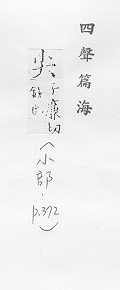 四聲篇海
尖子廉切
銳也
(小部,
p.372)